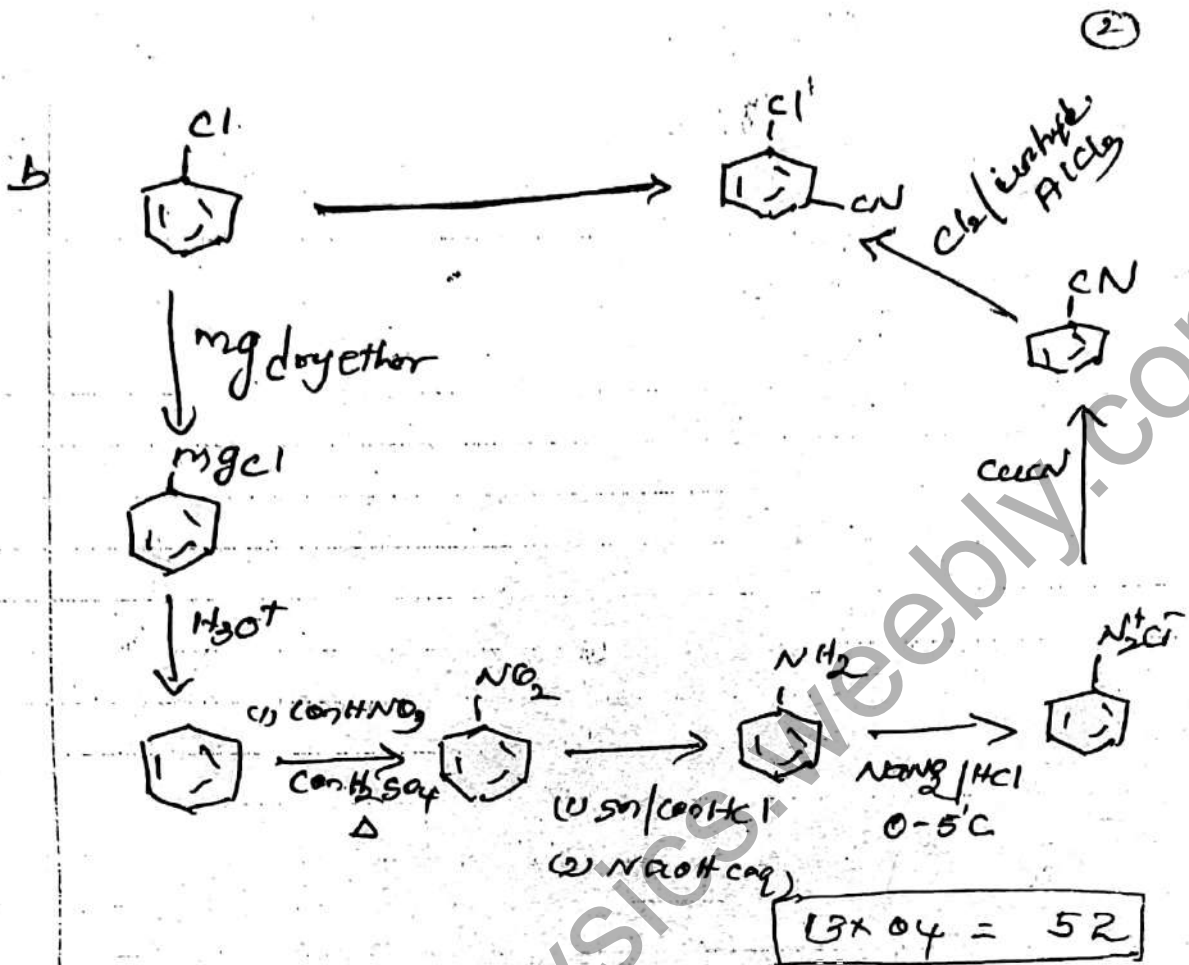 2
b
Cl
Cl
CN
Cl2/ anhyd.
AlCl3
CN
mg dry ether
mgcl
CuCN
H3O+
(1) Con HNO3
Con.H2SO4
Δ
NO2
(1) Sn/Con HCl
(2) NaOH (aq)
NH2
NaNO2/HCl
0-5°C
N2+Cl-
13 x 04 = 52
sics.weebly.co